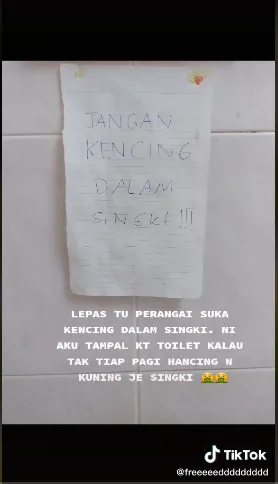 JANGAN
KENCING
DALAM
SiNGKI !!!
LEPAS TU PERANGAI SUKA
KENCING DALAM SINGKI. NI
AKU TAMPAL KT TOILET KALAU
TAK TIAP PAGI HANCING N
KUNING JE SINGKI 🤮🤮
TikTok
@freeeeedddddddd